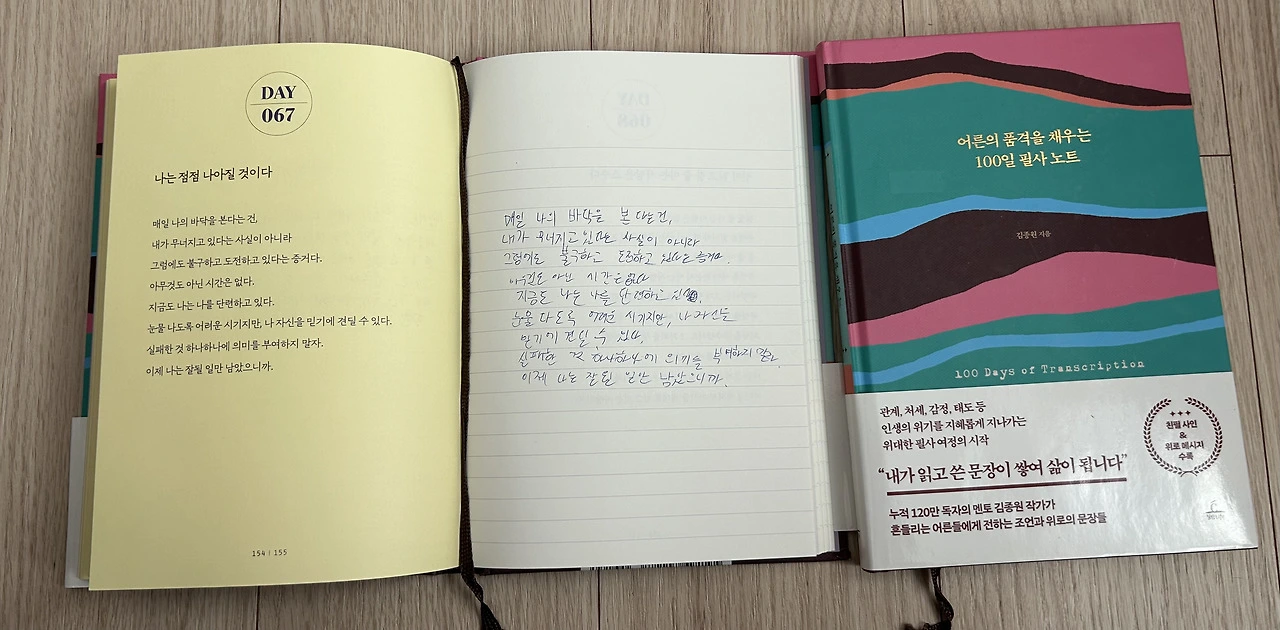 DAY
067
나는 점점 나아질 것이다
매일 나의 바닥을 본다는 건,
내가 무너지고 있다는 사실이 아니라
그럼에도 불구하고 도전하고 있다는 증거다.
아무것도 아닌 시간은 없다.
지금도 나는 나를 단련하고 있다.
눈물 나도록 어려운 시기지만, 나 자신을 믿기에 견딜 수 있다.
실패한 것 하나하나에 의미를 부여하지 말자.
이제 나는 잘될 일만 남았으니까.
154 | 155
매일 나의 바닥을 본다는 건,
내가 무너지고 있다는 사실이 아니라
그럼에도 불구하고 도전하고 있다는 증거다.
아무것도 아닌 시간은 없다
지금도 나는 나를 단련하고
눈물 나도록 어려운 시기지만, 나 자신을
믿기에 견딜 수 있다
실패한 것 하나하나에 의미를 부여하지 말자
이제 나는 잘될 일만 남았으니까.
어른의 품격을 채우는
100일 필사 노트
김종원 지음
100 Days of Transcription
관계, 처세, 감정, 태도 등
인생의 위기를 지혜롭게 지나가는
위대한 필사 여정의 시작
“내가 읽고 쓴 문장이 쌓여 삶이 됩니다”
누적 120만 독자의 멘토 김종원 작가가
흔들리는 어른들에게 전하는 조언과 위로의 문장들
친필 사인
&
위로 메시지
수록